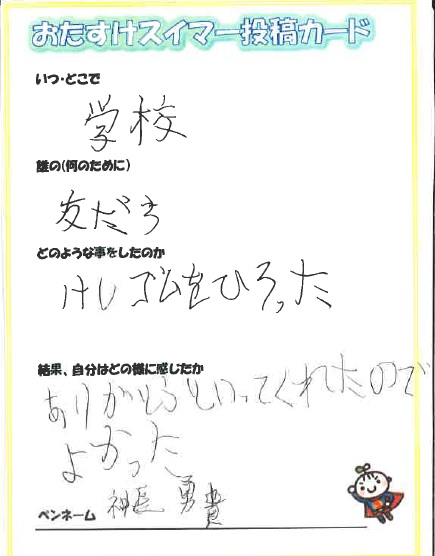 おたすけスイマー投稿カード
いつ・どこで
学校
誰の(何のために)
友だち
どのような事をしたのか
けしゴムをひろった
結果、自分はどの様に感じたか
ありがとうといってくれたので
よかった
ペンネーム 神長 勇貴